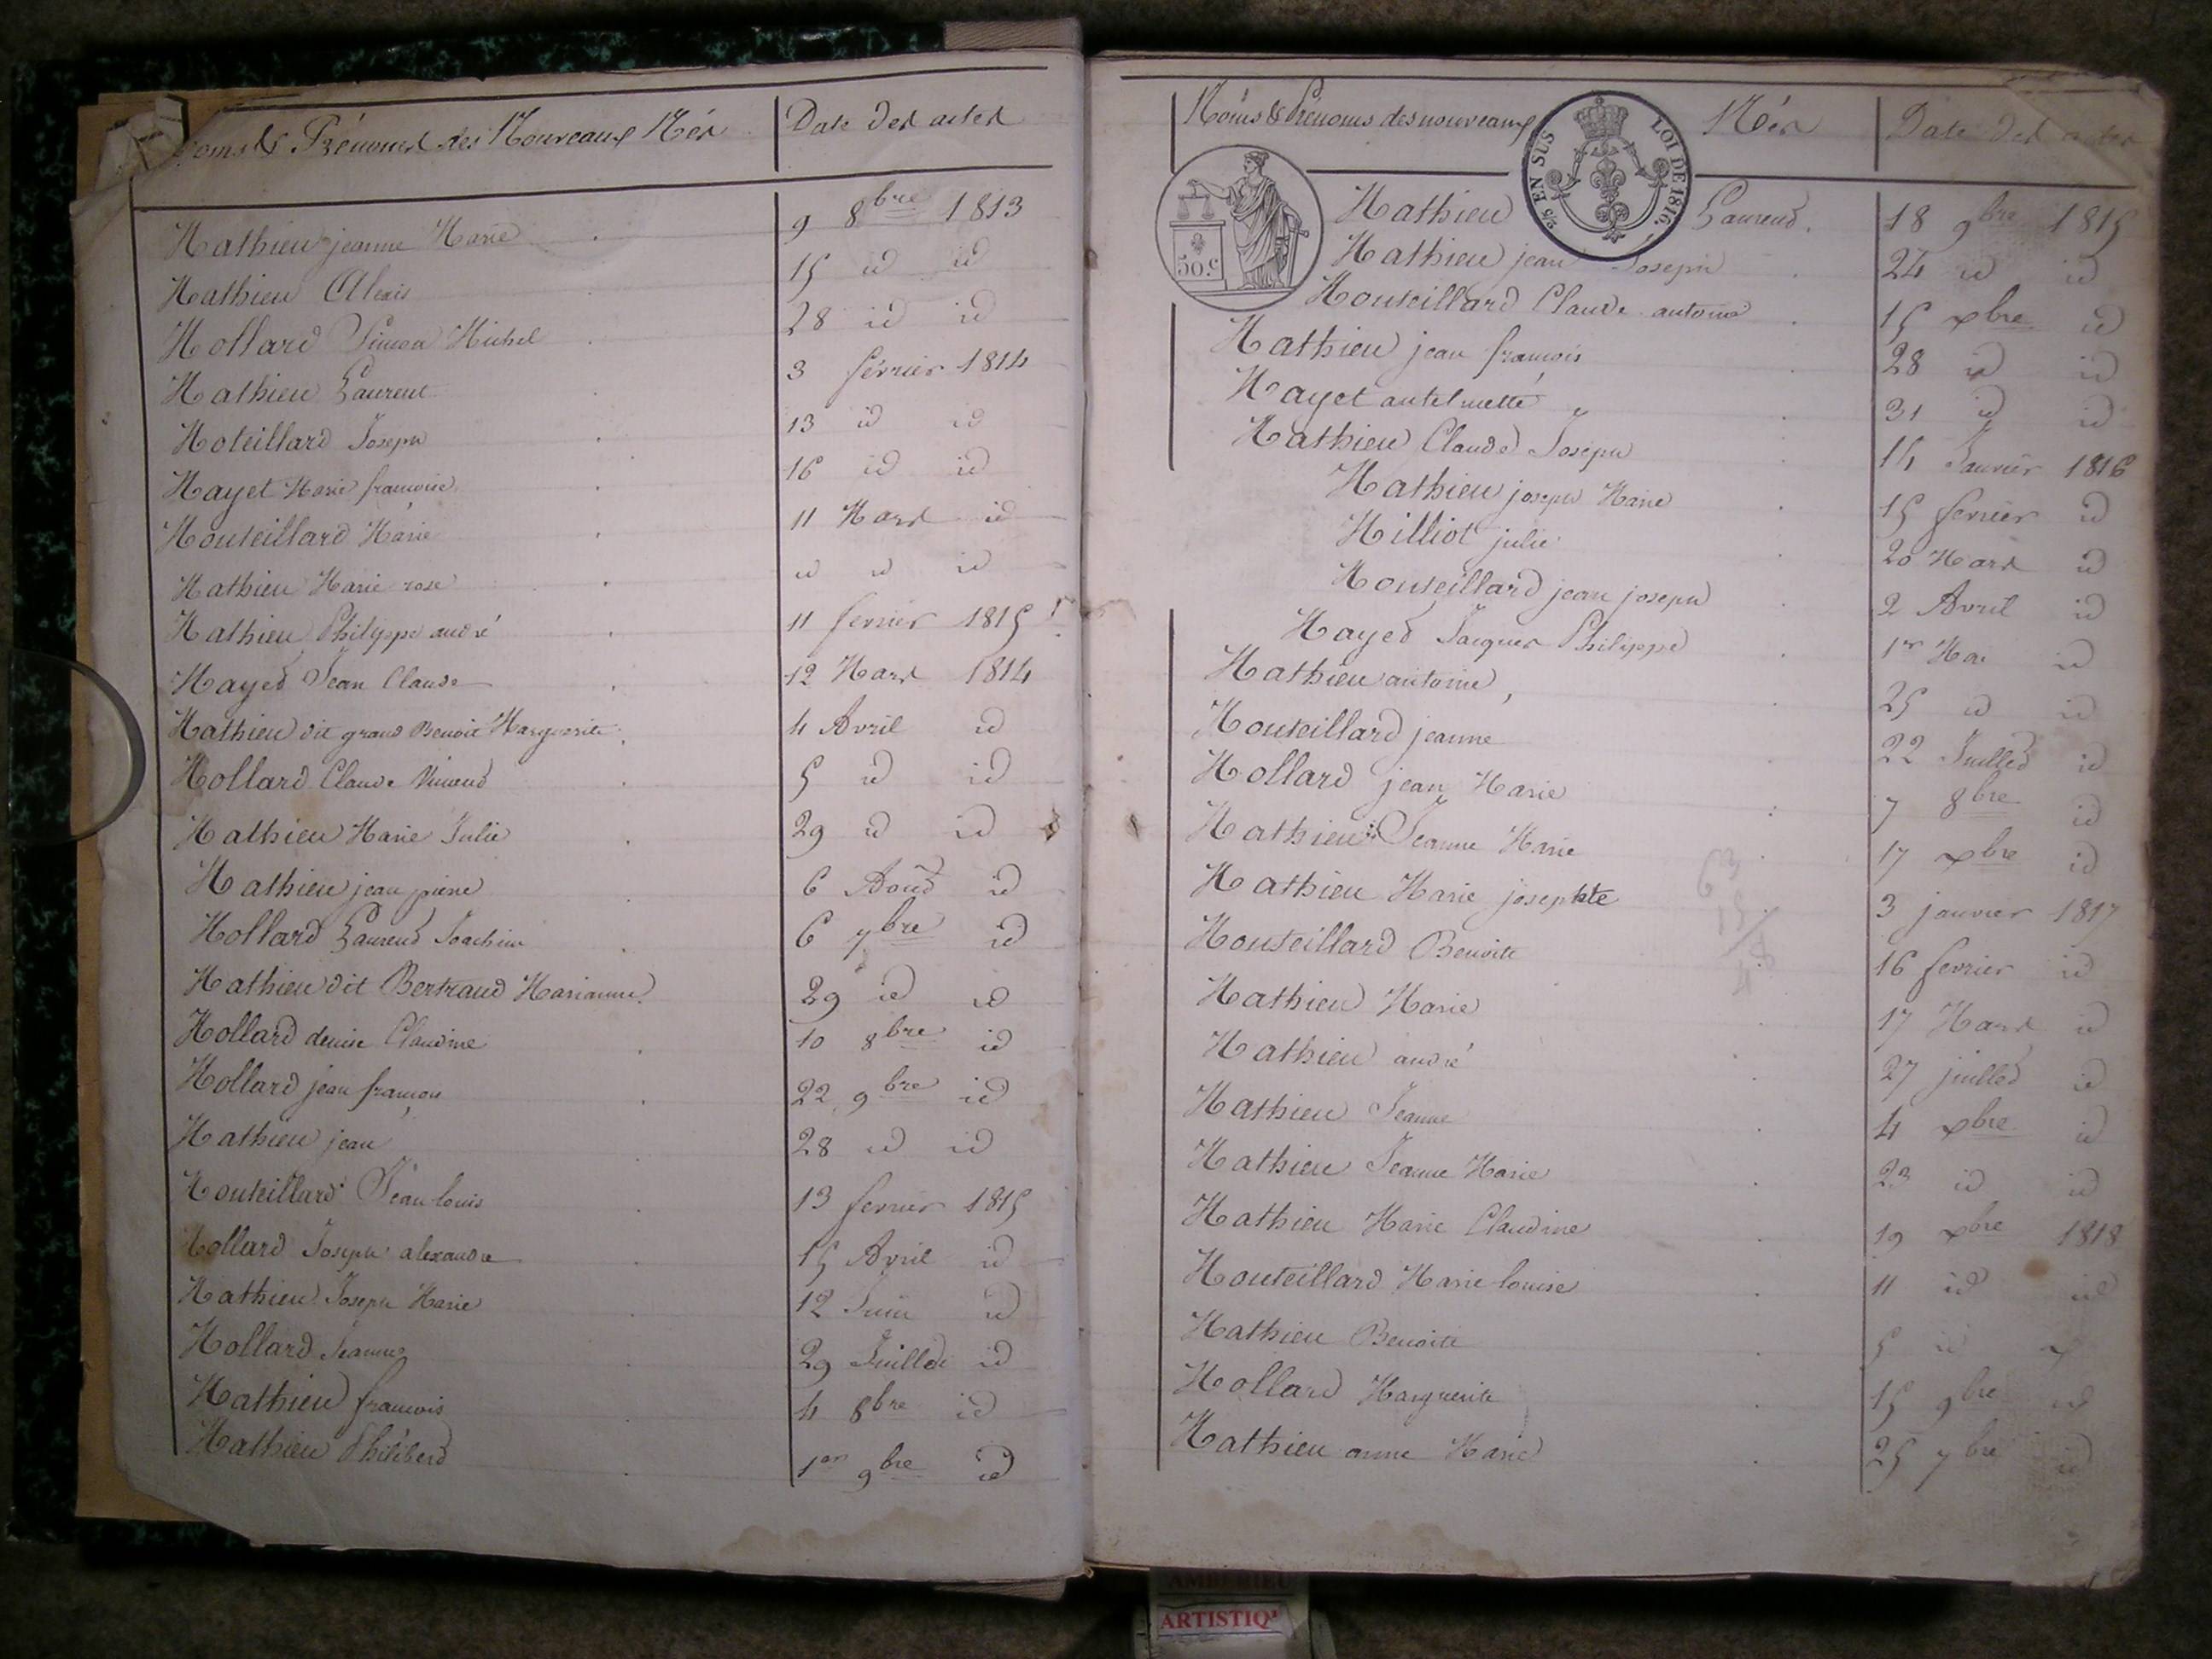 Noms & Prénoms des Nouveaux Nés Date des actes
Mathieu jeanne Marie 9 8bre 1813
Mathieu Alexis 15 id id
Mollard Simon Michel 28 id id
Mathieu Laurent 3 février 1814
Moteillard Joseph 13 id id
Mayet Marie francoise 16 id id
Monteillard Marie 11 Mars id
Mathieu Marie rose id id id
Mathieu Philippe andré 11 fevrier 1815
Mayed Jean Claude 12 Mars 1814
Mathieu dit grand Benoit Marguerite 4 Avril id
Mollard Claude Vincend 5 id id
Mathieu Marie Julie 29 id id
Mathieu jean pierre 6 Aoud id
Mollard Laurend Joachim 6 7bre id
Mathieu dit Bertrand Marianne 29 id id
Mollard denise Claudine 10 8bre id
Mollard jean françois 22 9bre id
Mathieu jean 28 id id
Monteillard Jean louis 13 fevrier 1815
Mollard Joseph alexandre 15 Avril id
Mathieu Joseph Marie 12 Juin id
Mollard Jeanne 29 Juillet id
Mathieu francois 4 8bre id
Mathieu Philiberd 1er 9bre id
Noms & Prénoms des nouveaux Nés Date des actes
5/5 EN SUS LOI DE 1816.
50.c
Mathieu Laurend 18 9bre 1815
Mathieu jean Joseph 24 id id
Monteillard Claude antoine 15 xbre id
Mathieu jean françois 28 id id
Mayet antelmette 31 id id
Mathieu Claude Joseph 14 Janvier 1816
Mathieu joseph Marie 15 fevrier id
Milliot julie 20 Mars id
Monteillard jean joseph 2 Avril id
Mayed Jacques Philippe 1er Mai id
Mathieu antoine 25 id id
Monteillard jeanne 22 Juilled id
Mollard jean Marie 7 8bre id
Mathieu Jeanne Marie 17 xbre id
Mathieu Marie josephte 3 janvier 1817
63
15
48
Monteillard Benoite 16 fevrier id
Mathieu Marie 17 Mars id
Mathieu andré 27 juilled id
Mathieu Jeanne 4 xbre id
Mathieu Jeanne Marie 23 id id
Mathieu Marie Claudine 19 xbre 1818
Monteillard Marie louise 11 id id
Mathieu Benoite 5 id
Mollard Marguerite 15 9bre id
Mathieu anne Marie 25 7bre id
AMBERIEU
ARTISTIQ